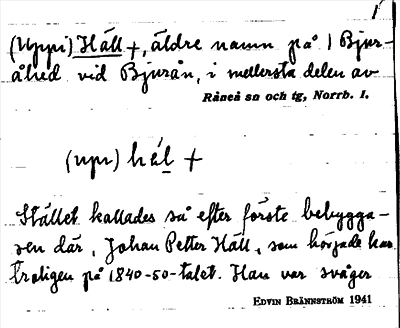 1
(Uppi) Häll +, äldre namn på 1 Bjur-
åhed vid Bjurån, i mellersta delen av
Råneå sn och tg, Norrb. l.
(upi) hɛ́l +
Stället kallades så efter förste bebygga-
ren där, Johan Petter Häll, som började här
troligen på 1840-50-talet. Han var svåger
EDVIN BRÄNNSTRÖM 1941